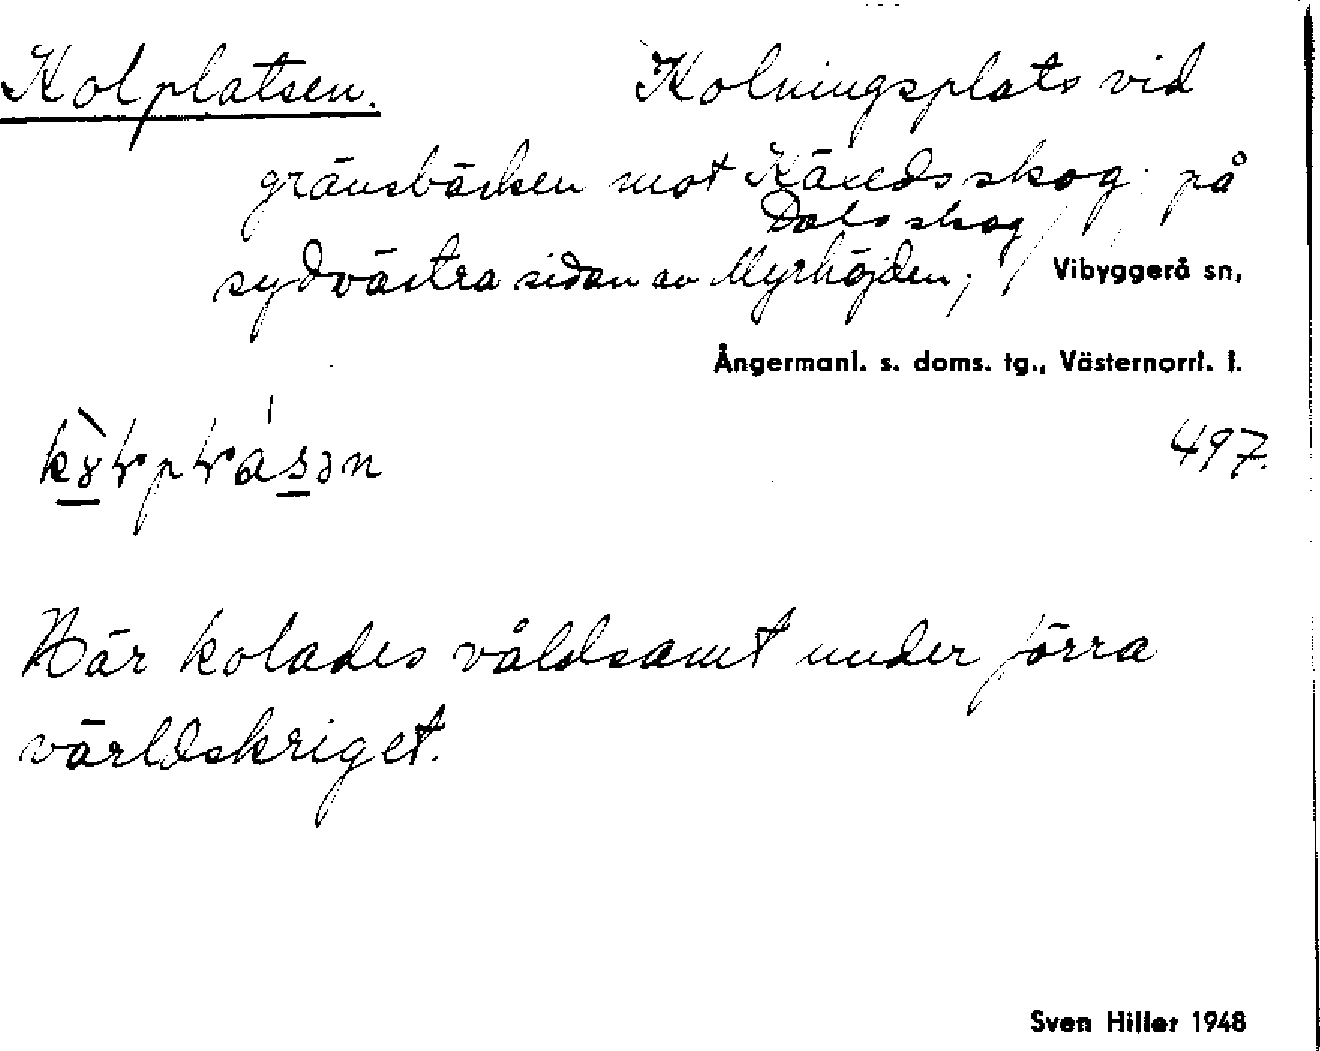 Kolplatsen. Kolningsplats vid
gränsbäcken mot Käxedsskog, på
Dalsskog
sydvästra sidan av Myrhöjden, Vibyggerå sn,
Ångermanl. s. doms. tg., Västernorrl. l.
497.
Här kolades våldsamt under förra
världskriget.
Sven Hiller 1948